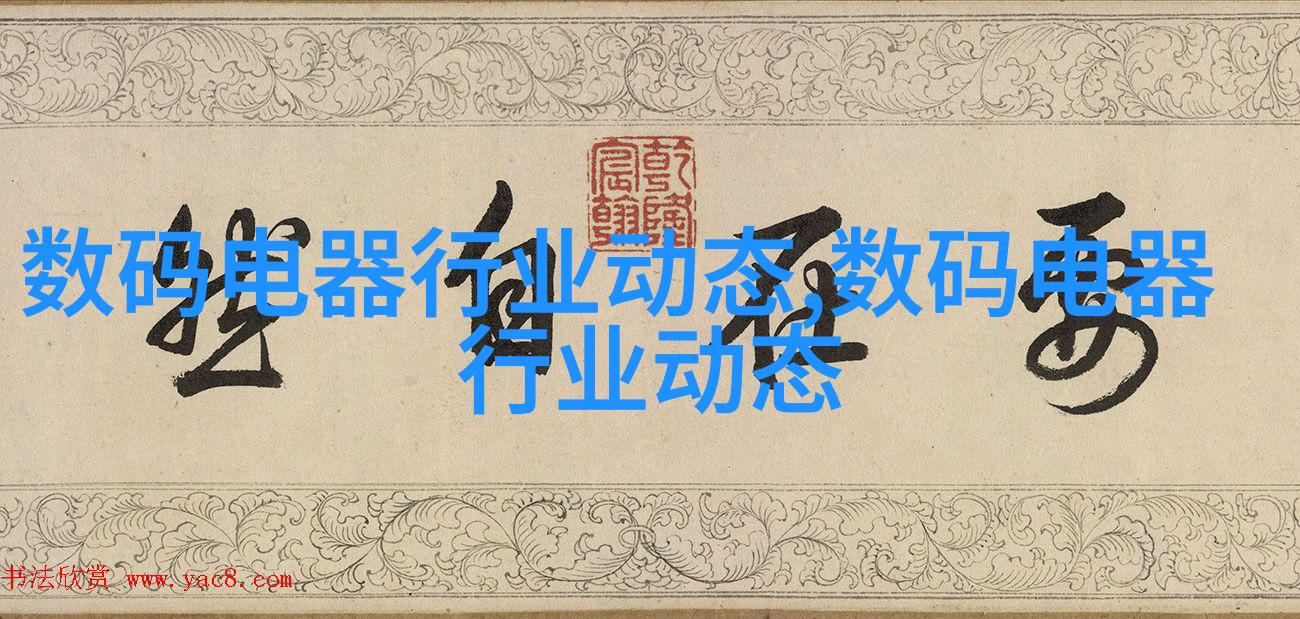 乾隆
宸翰
要在自
数码电器行业动态,数码电器
行业动态
书法欣赏 www.yac8.com